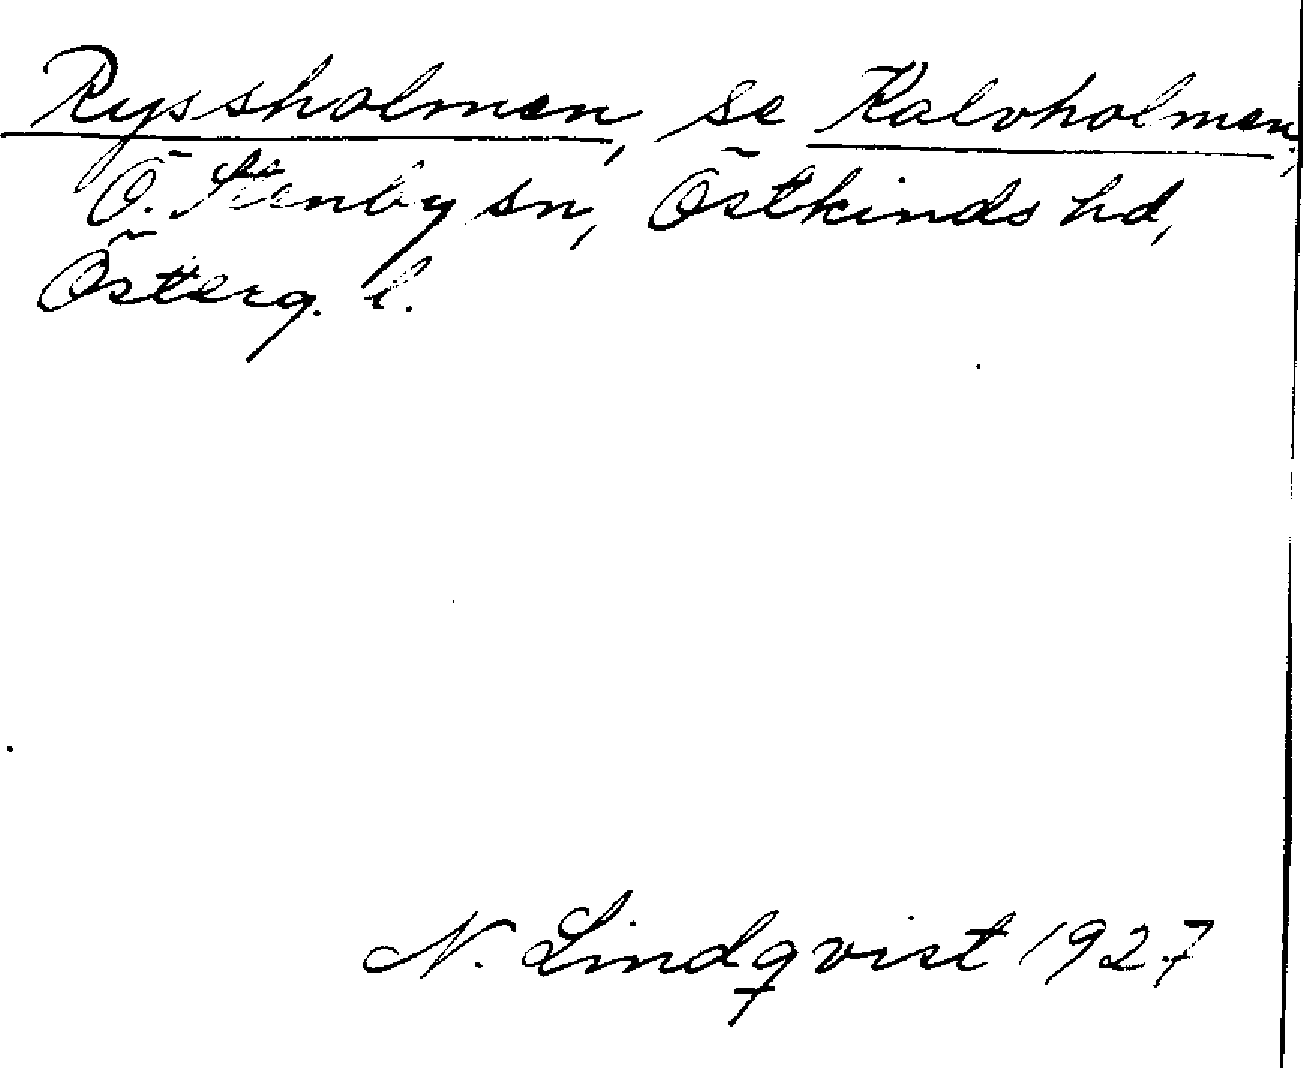 Ryssholmen, se Kalvholmen,
Ö. Stenby sn, Östkinds hd,
Österg. l.
N. Lindqvist 1927